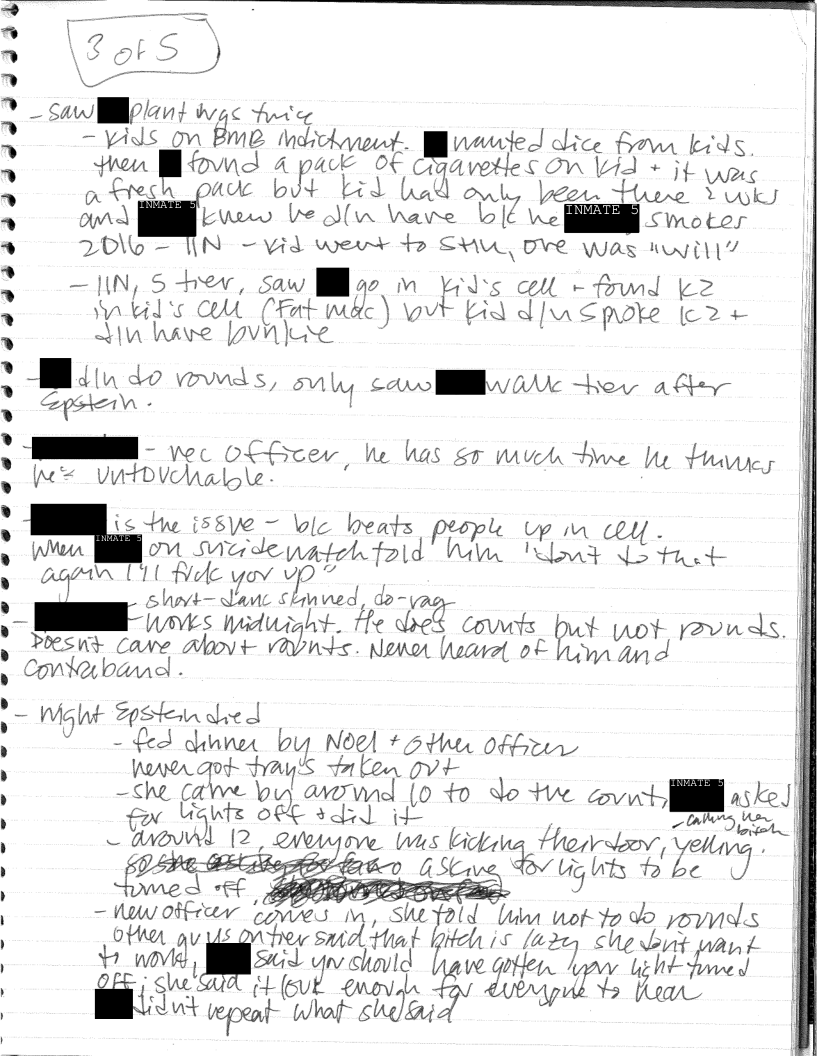 3 of 5
- saw plant wgs twice
- kids on BMB indictment. wanted dice from kids.
then found a pack of cigarettes on kid + it was
a fresh pack but kid had only been there 2 wks
and INMATE 5 knew he d/n have b/c he INMATE 5 smokes
2016 - 11N - kid went to SHU, one was "Will"
- 11N, 5 tier, saw go in kid's cell + found K2
in kid's cell (Fat mac) but kid d/n smoke K2 +
d/n have bunkie
- d/n do rounds, only saw walk tier after
Epstein.
- rec officer, he has so much time he thinks
he's untouchable.
- is the issue - b/c beats people up in cell.
When INMATE 5 on suicide watch told him "don't do that
again I'll fuck you up"
- short-dark skinned, do-rag
- works midnight. He does counts but not rounds.
Doesn't care about rounts. Never heard of him and
contraband.
- night Epstein died
- fed dinner by Noel + other officer
never got trays taken out
- she came by around 10 to do the count, INMATE 5 asked
for lights off + did it
- calling her
bitch
- around 12, everyone was kicking their door, yelling.
asking for lights to be
turned off
- new officer comes in, she told him not to do rounds
other guys on tier said that bitch is lazy she don't want
to work, said you should have gotten your light turned
off; she said it loud enough for everyone to hear
didn't repeat what she said